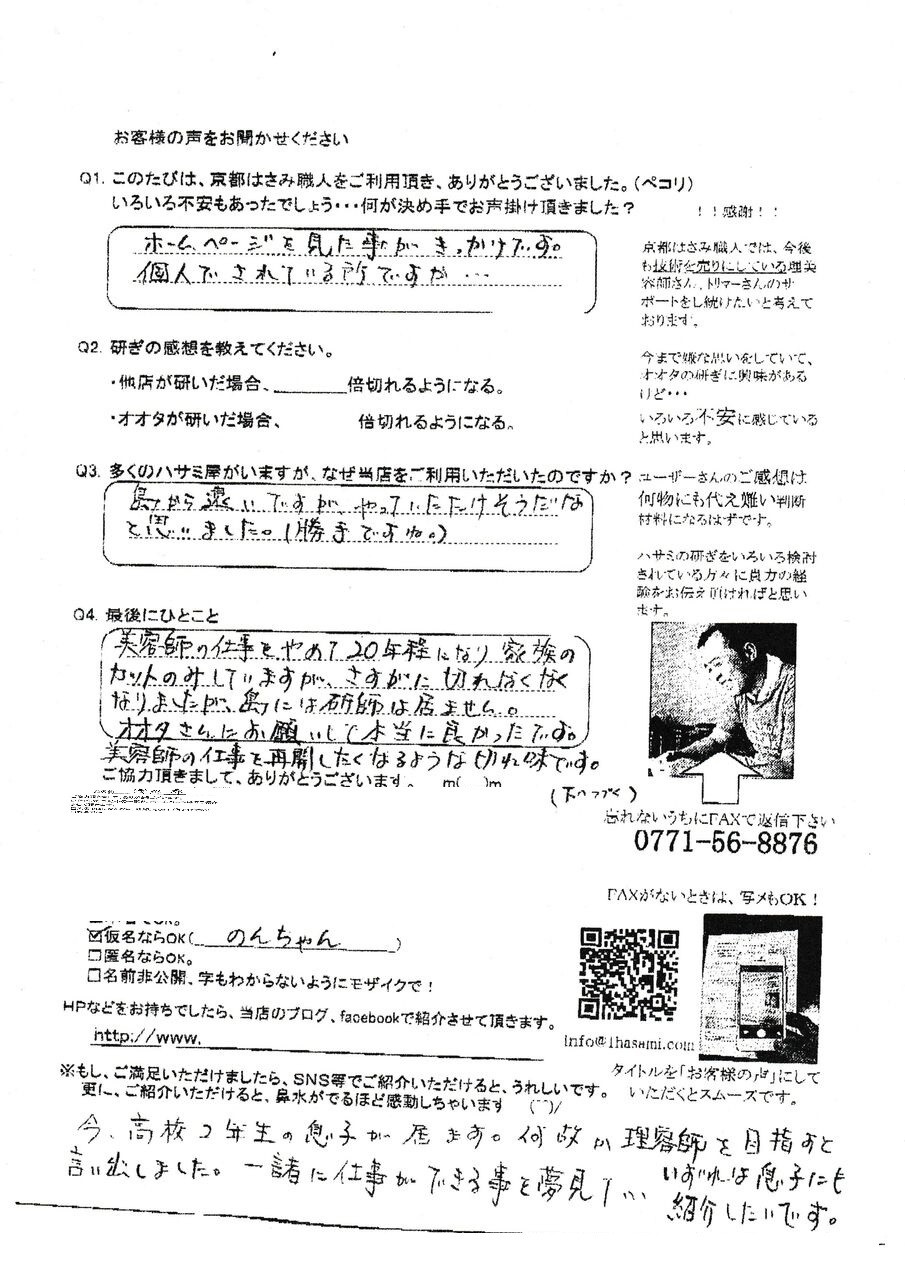 お客様の声をお聞かせください
Q1. このたびは、京都はさみ職人をご利用頂き、ありがとうございました。(ペコリ)
いろいろ不安もあったでしょう・・・何が決め手でお声掛け頂きました？
ホームページを見た事がきっかけです。
個人でされている所ですが…
Q2. 研ぎの感想を教えてください。
・他店が研いだ場合、______倍切れるようになる。
・オオタが研いだ場合、 倍切れるようになる。
Q3. 多くのハサミ屋がいますが、なぜ当店をご利用いただいたのですか？
島から遠いですが、やっていただけそうだな
と思いました。(勝手ですね。)
Q4. 最後にひとこと
美容師の仕事をやめて20年程になり家族の
カットのみしていますが、さすがに切れなくなく
なりましたが、島には研師は居ません。
オオタさんにお願いして本当に良かったです。
美容師の仕事を再開したくなるような切れ味です。
(下へつづく)
ご協力頂きまして、ありがとうございます。 m( )m
！！感謝！！
京都はさみ職人では、今後
も技術を売りにしている理美
容師さん、トリマーさんのサ
ポートをし続けたいと考えて
おります。
今まで嫌な思いをしていて、
オオタの研ぎに興味がある
けど・・・
いろいろ不安に感じている
と思います。
ユーザーさんのご感想は
何物にも代え難い判断
材料になるはずです。
ハサミの研ぎをいろいろ検討
されている方々に貴方の経
験をお伝え頂ければと思い
ます。
忘れないうちにFAXで返信下さい
0771-56-8876
FAXがないときは、写メもOK！
☑仮名ならOK(のんちゃん)
□匿名ならOK。
□名前非公開、字もわからないようにモザイクで！
HPなどをお持ちでしたら、当店のブログ、facebookで紹介させて頂きます。
http://www.
info@1hasami.com
タイトルを「お客様の声」にして
いただくとスムーズです。
※もし、ご満足いただけましたら、SNS等でご紹介いただけると、うれしいです。
更に、ご紹介いただけると、鼻水がでるほど感動しちゃいます (￣)/
今、高校2年生の息子が居ます。何故か理容師を目指すと
言い出しました。一諸に仕事ができる事を夢見て…
いずれは息子にも
紹介したいです。